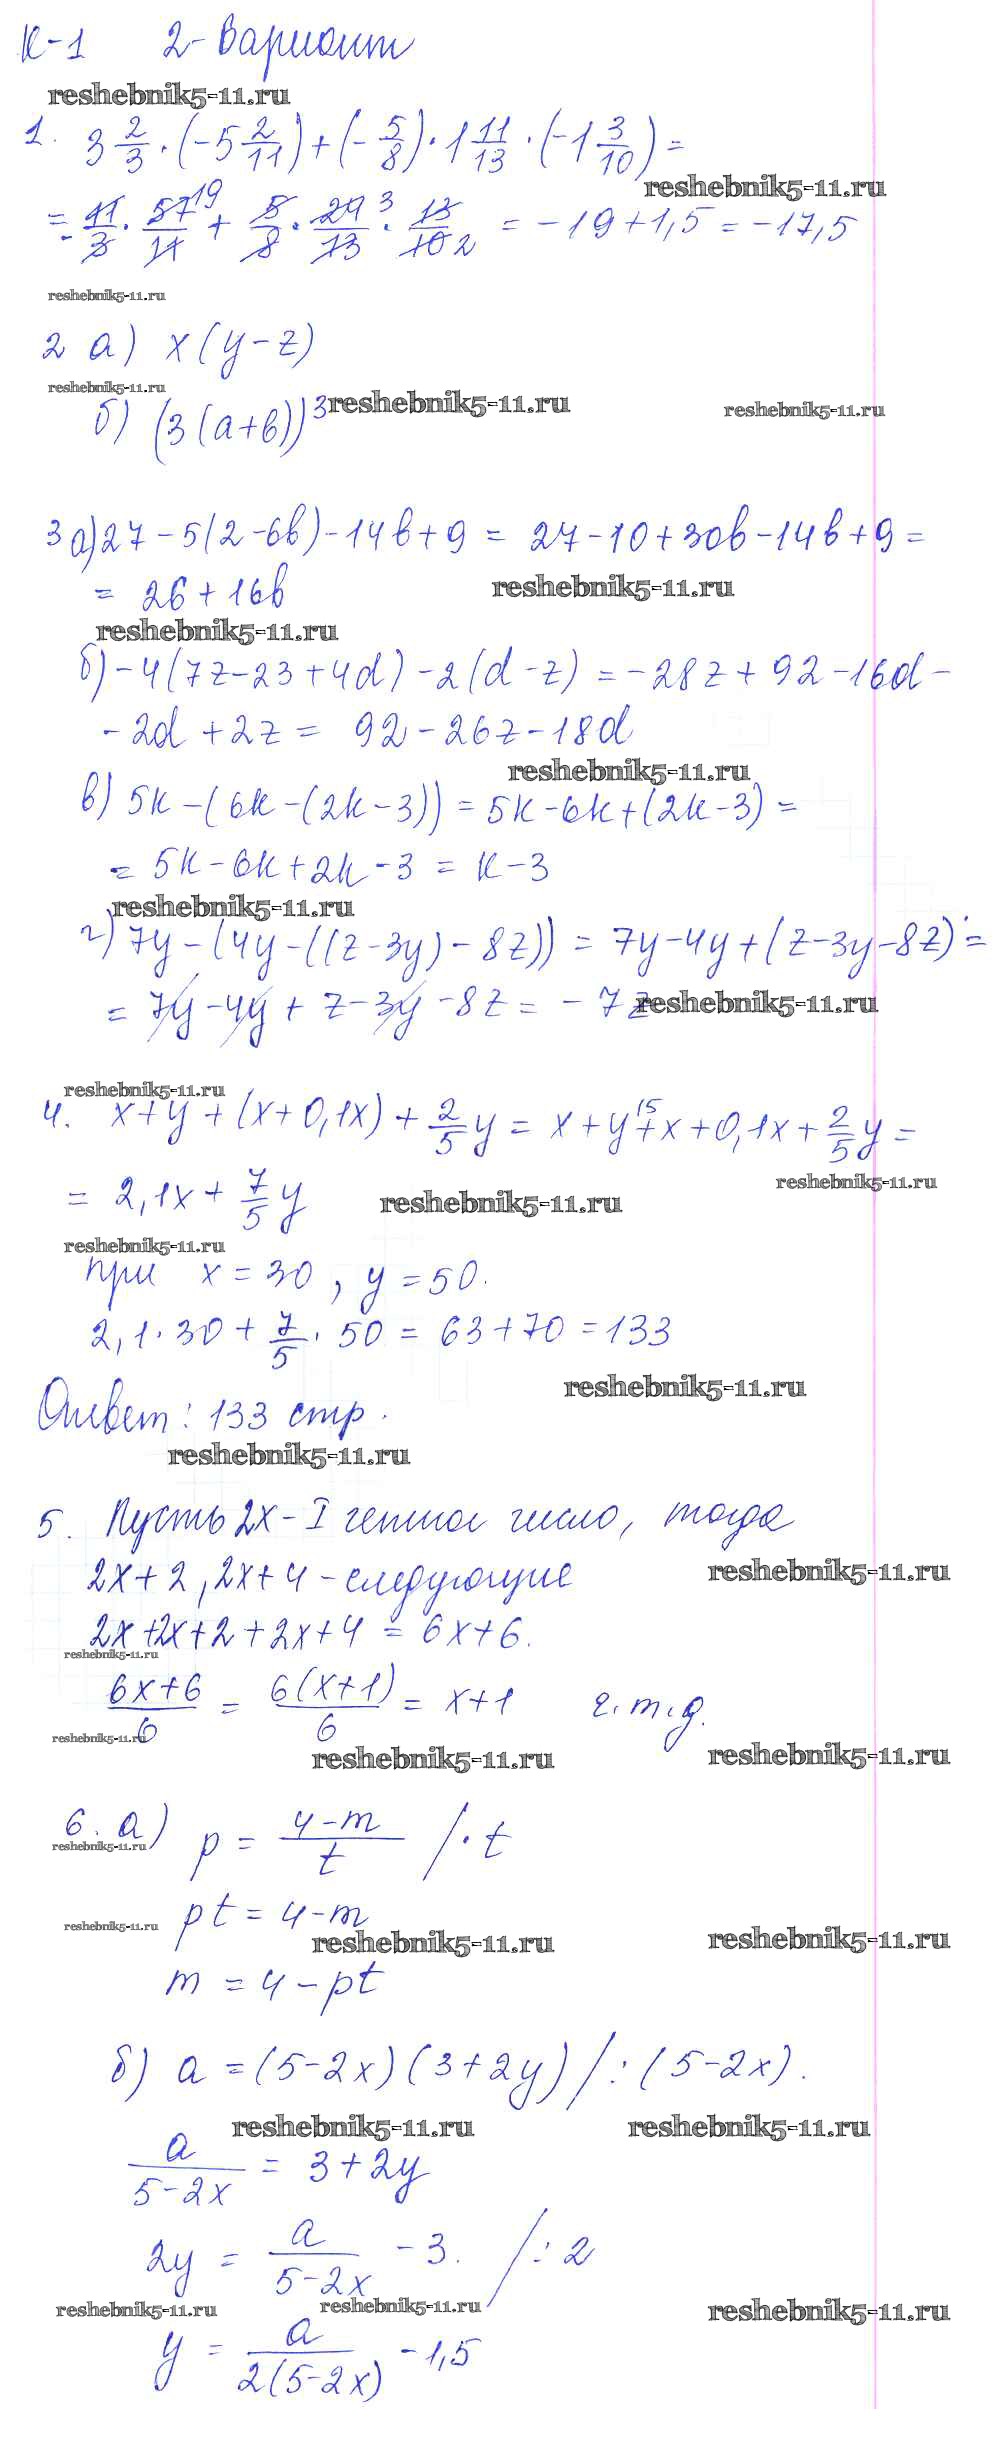 К-1 2-Вариант
reshebnik5-11.ru
1. 3 2/3 · (-5 2/11) + (-5/8) · 1 11/13 · (-1 3/10) =
reshebnik5-11.ru
= - 11/3 · 57/11 19 + 5/8 · 24/13 3 · 13/10 2 = -19+1,5 = -17,5
reshebnik5-11.ru
2 а) x(y-z)
reshebnik5-11.ru
б) (3(a+b))³
reshebnik5-11.ru
reshebnik5-11.ru
3 а) 27-5(2-6b)-14b+9 = 27-10+30b-14b+9 =
= 26+16b
reshebnik5-11.ru
reshebnik5-11.ru
б) -4(7z-23+4d)-2(d-z) = -28z+92-16d-
-2d+2z = 92-26z-18d
reshebnik5-11.ru
в) 5k-(6k-(2k-3)) = 5k-6k+(2k-3) =
= 5k-6k+2k-3 = k-3
reshebnik5-11.ru
г) 7y-(4y-((z-3y)-8z)) = 7y-4y+(z-3y-8z) =
= 7y-4y+z-3y-8z = -7z
reshebnik5-11.ru
reshebnik5-11.ru
4. x+y+(x+0,1x)+ 2/5 y = x+y+x+0,1x+ 2/5 y =
reshebnik5-11.ru
= 2,1x+ 7/5 y
reshebnik5-11.ru
reshebnik5-11.ru
при x=30, y=50.
2,1·30+ 7/5 · 50 = 63+70 = 133
reshebnik5-11.ru
Ответ: 133 стр.
reshebnik5-11.ru
5. Пусть 2x - I четное число, тогда
2x+2, 2x+4 - следующие
reshebnik5-11.ru
2x+2x+2+2x+4 = 6x+6.
reshebnik5-11.ru
6x+6/6 = 6(x+1)/6 = x+1 ч.т.д.
reshebnik5-11.ru
reshebnik5-11.ru
reshebnik5-11.ru
6. а) p = 4-m/t /·t
reshebnik5-11.ru
pt = 4-m
reshebnik5-11.ru
reshebnik5-11.ru
reshebnik5-11.ru
m = 4-pt
б) a = (5-2x)(3+2y) /:(5-2x).
reshebnik5-11.ru
reshebnik5-11.ru
a/5-2x = 3+2y
2y = a/5-2x -3. /:2
reshebnik5-11.ru
reshebnik5-11.ru
reshebnik5-11.ru
y = a/2(5-2x) -1,5